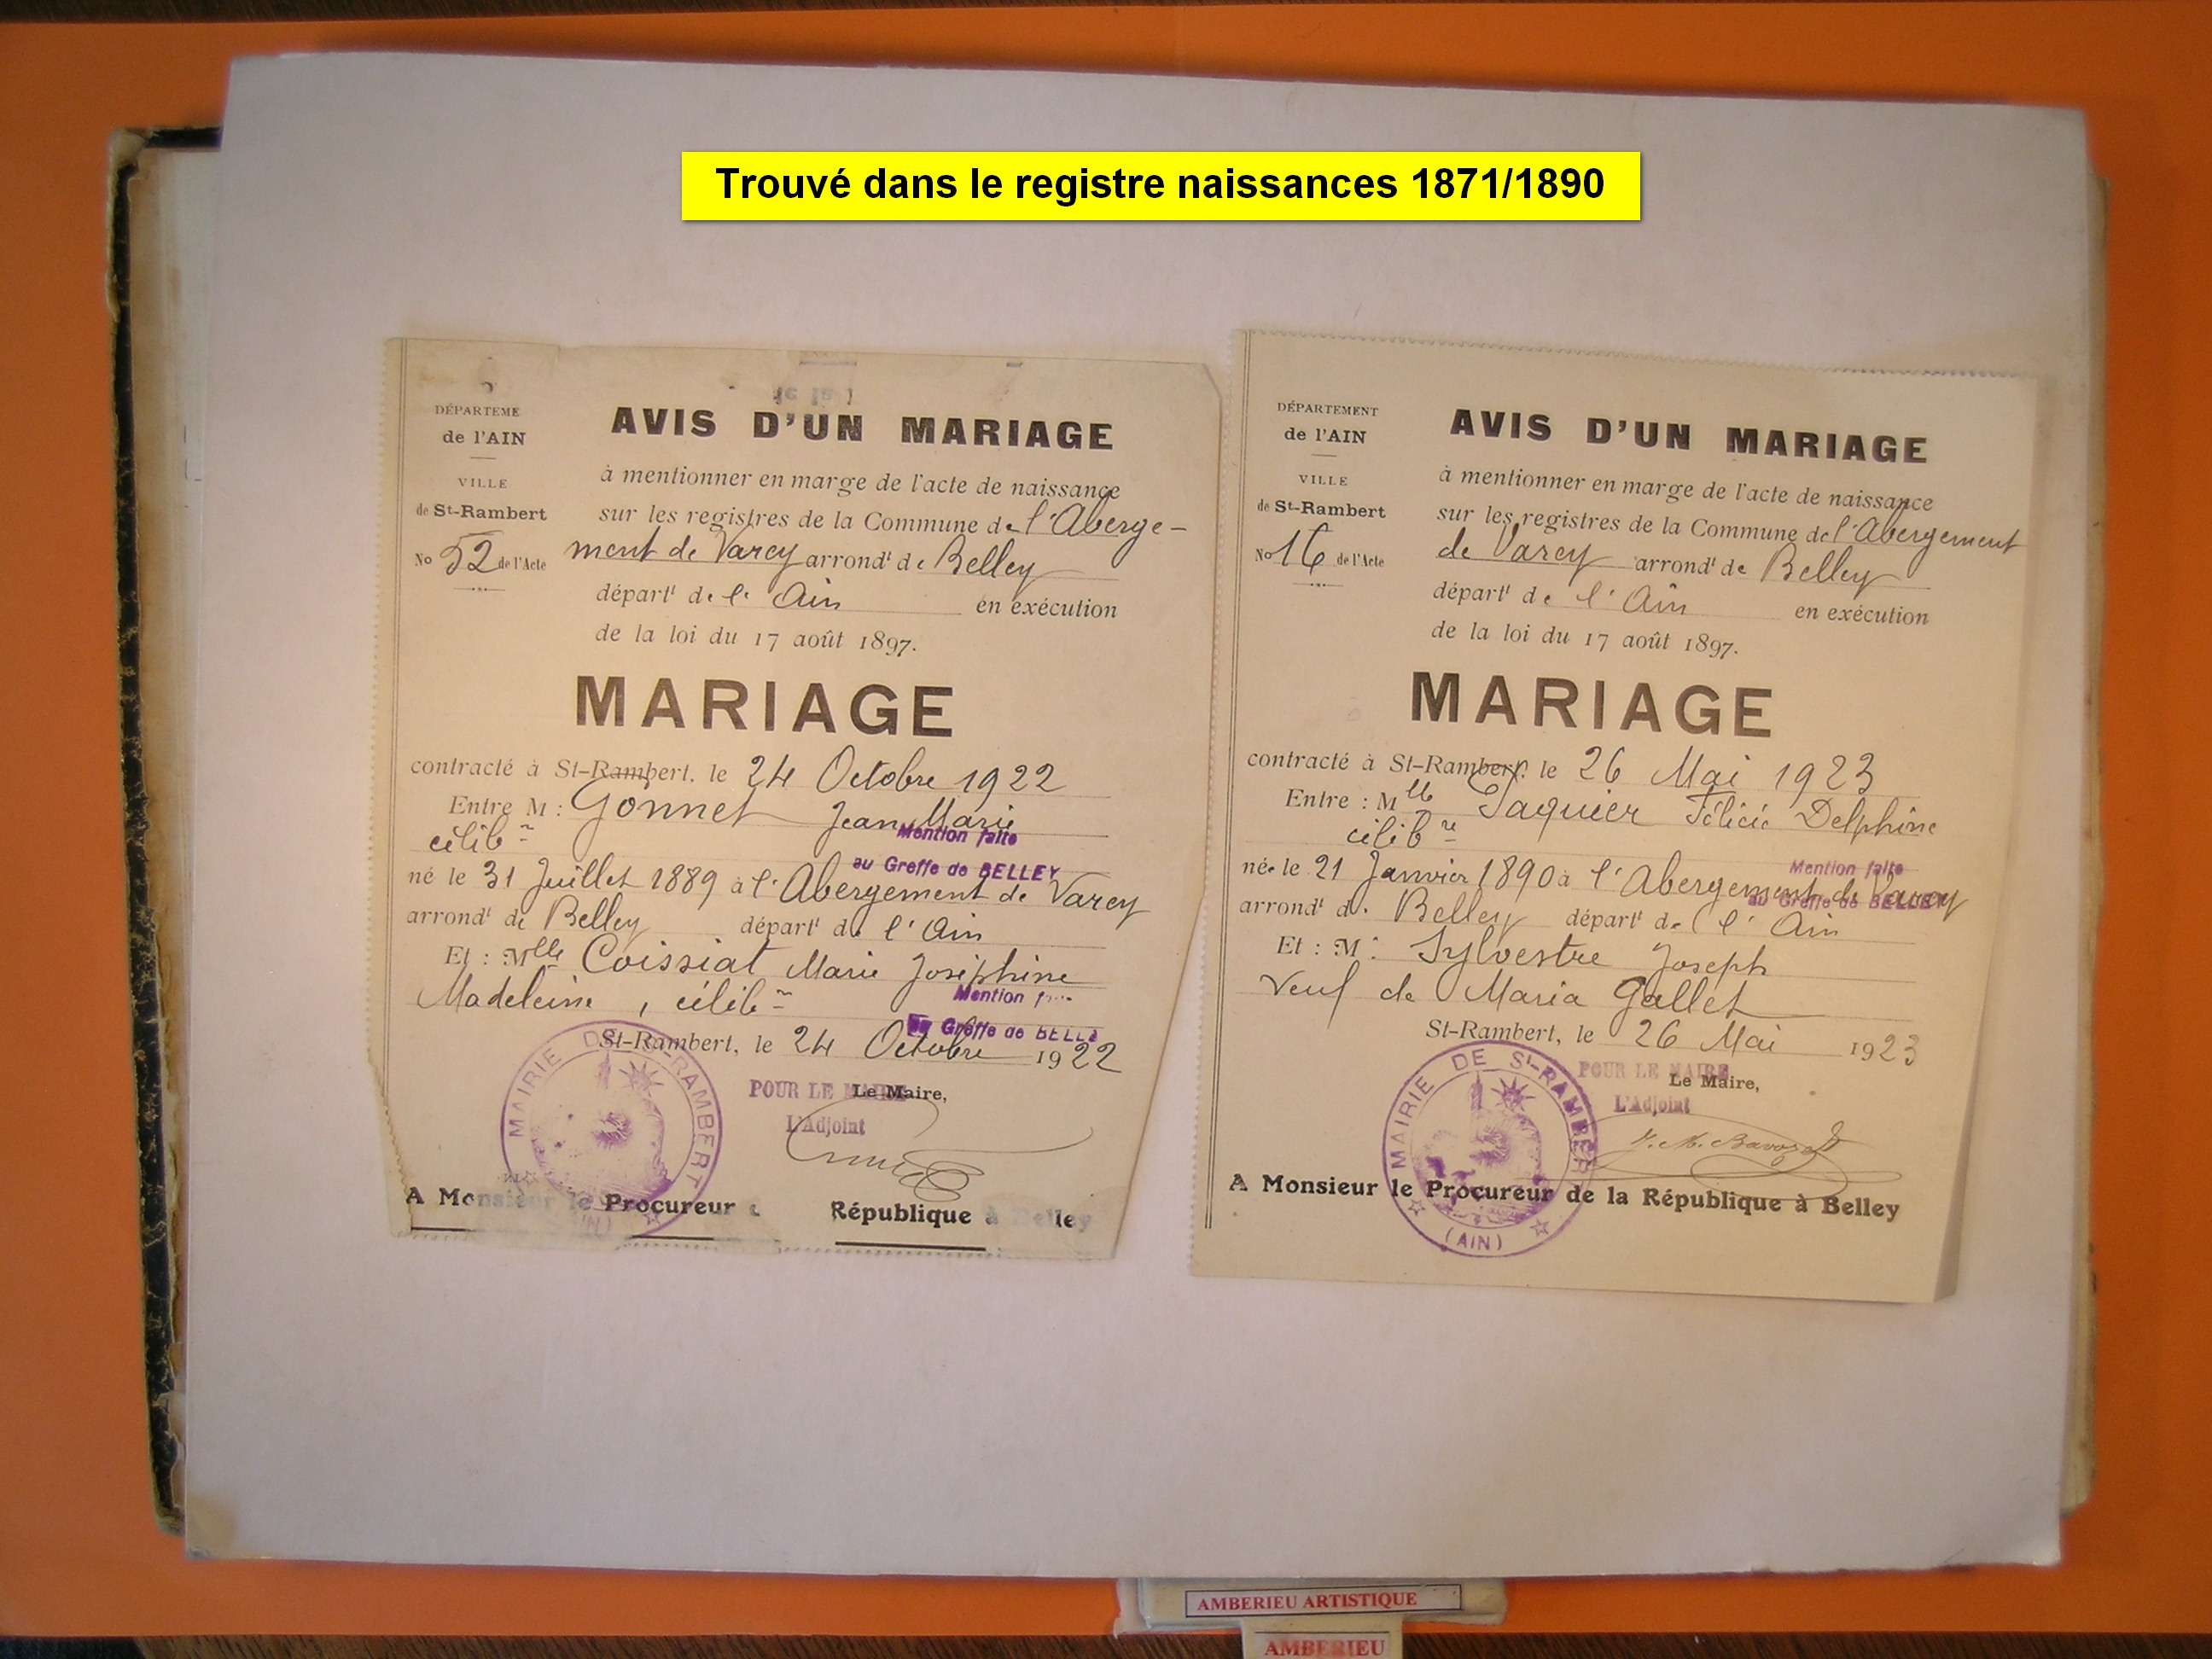 Trouvé dans le registre naissances 1871/1890
DÉPARTEME
de l'AIN
VILLE
de St-Rambert
No 52 de l'Acte
AVIS D'UN MARIAGE
à mentionner en marge de l'acte de naissance
sur les registres de la Commune de l'Aberge-
ment de Varey arrondt de Belley
départt de l' Ain en exécution
de la loi du 17 août 1897.
MARIAGE
contracté à St-Rambert, le 24 Octobre 1922
Entre M : Gonnet Jean Marie
célibre
Mention faite
au Greffe de BELLEY
né le 31 Juillet 1889 à l'Abergement de Varey
arrondt de Belley départt de l'Ain
Et : Mlle Coissiat Marie Joséphine
Madeleine, célibre
Mention
au Greffe de BELLE
St-Rambert, le 24 Octobre 1922
MAIRIE DE St-RAMBERT
(AIN)
POUR LE MAIRE
Le Maire,
L'Adjoint
A Monsieur le Procureur République à Belley
DÉPARTEMENT
de l'AIN
VILLE
de St-Rambert
No 16 de l'Acte
AVIS D'UN MARIAGE
à mentionner en marge de l'acte de naissance
sur les registres de la Commune de l'Abergement
de Varey arrondt de Belley
départt de l' Ain en exécution
de la loi du 17 août 1897.
MARIAGE
contracté à St-Rambert, le 26 Mai 1923
Entre : Mlle Jaquier Félicie Delphine
célibre
Mention faite
au Greffe de BELLEY
née le 21 Janvier 1890 à l'Abergement de Varey
arrondt de Belley départt de l'Ain
Et : M. Sylvestre Joseph
Veuf de Maria Gallet
St-Rambert, le 26 Mai 1923
MAIRIE DE St-RAMBERT
(AIN)
POUR LE MAIRE
Le Maire,
L'Adjoint
A Monsieur le Procureur de la République à Belley
AMBERIEU ARTISTIQUE
AMBERIEU